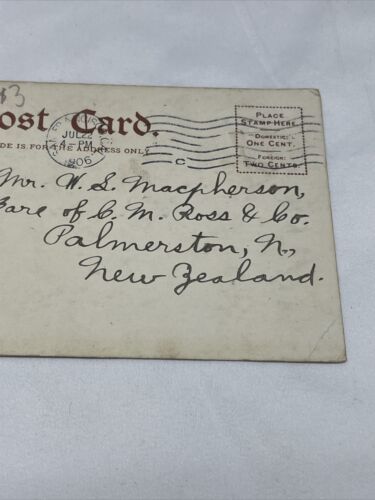 $3
Post Card.
DE IS FOR THE ADDRESS ONLY
JUL 22
4-PM
1906
C
PLACE
STAMP HERE.
DOMESTIC:
ONE CENT.
FOREIGN:
TWO CENTS.
Mr. W. S. Macpherson,
Care of C. M. Ross & Co.
Palmerston, N.,
New Zealand.